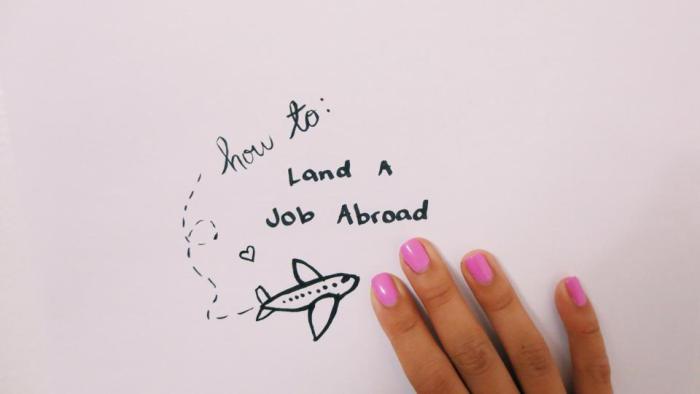 how to:
Land A
Job Abroad